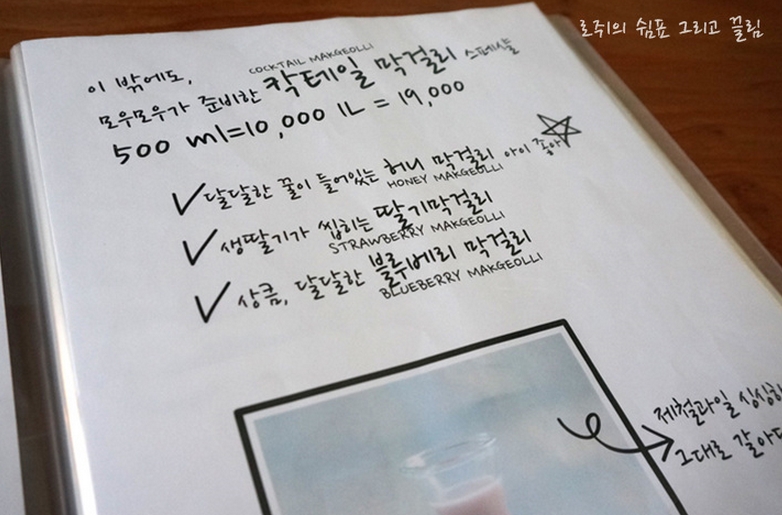 로쥐의 쉼표 그리고 끌림
이 밖에도,
COCKTAIL MAKGEOLLI
모우모우가 준비한 칵테일 막걸리 스페셜
500 ml=10,000 1L = 19,000
달달한 꿀이 들어있는 허니 막걸리 아이 좋아
HONEY MAKGEOLLI
생딸기가 씹히는 딸기막걸리
STRAWBERRY MAKGEOLLI
상큼, 달달한 블루베리 막걸리
BLUEBERRY MAKGEOLLI
제철과일 싱싱하
그대로 갈아